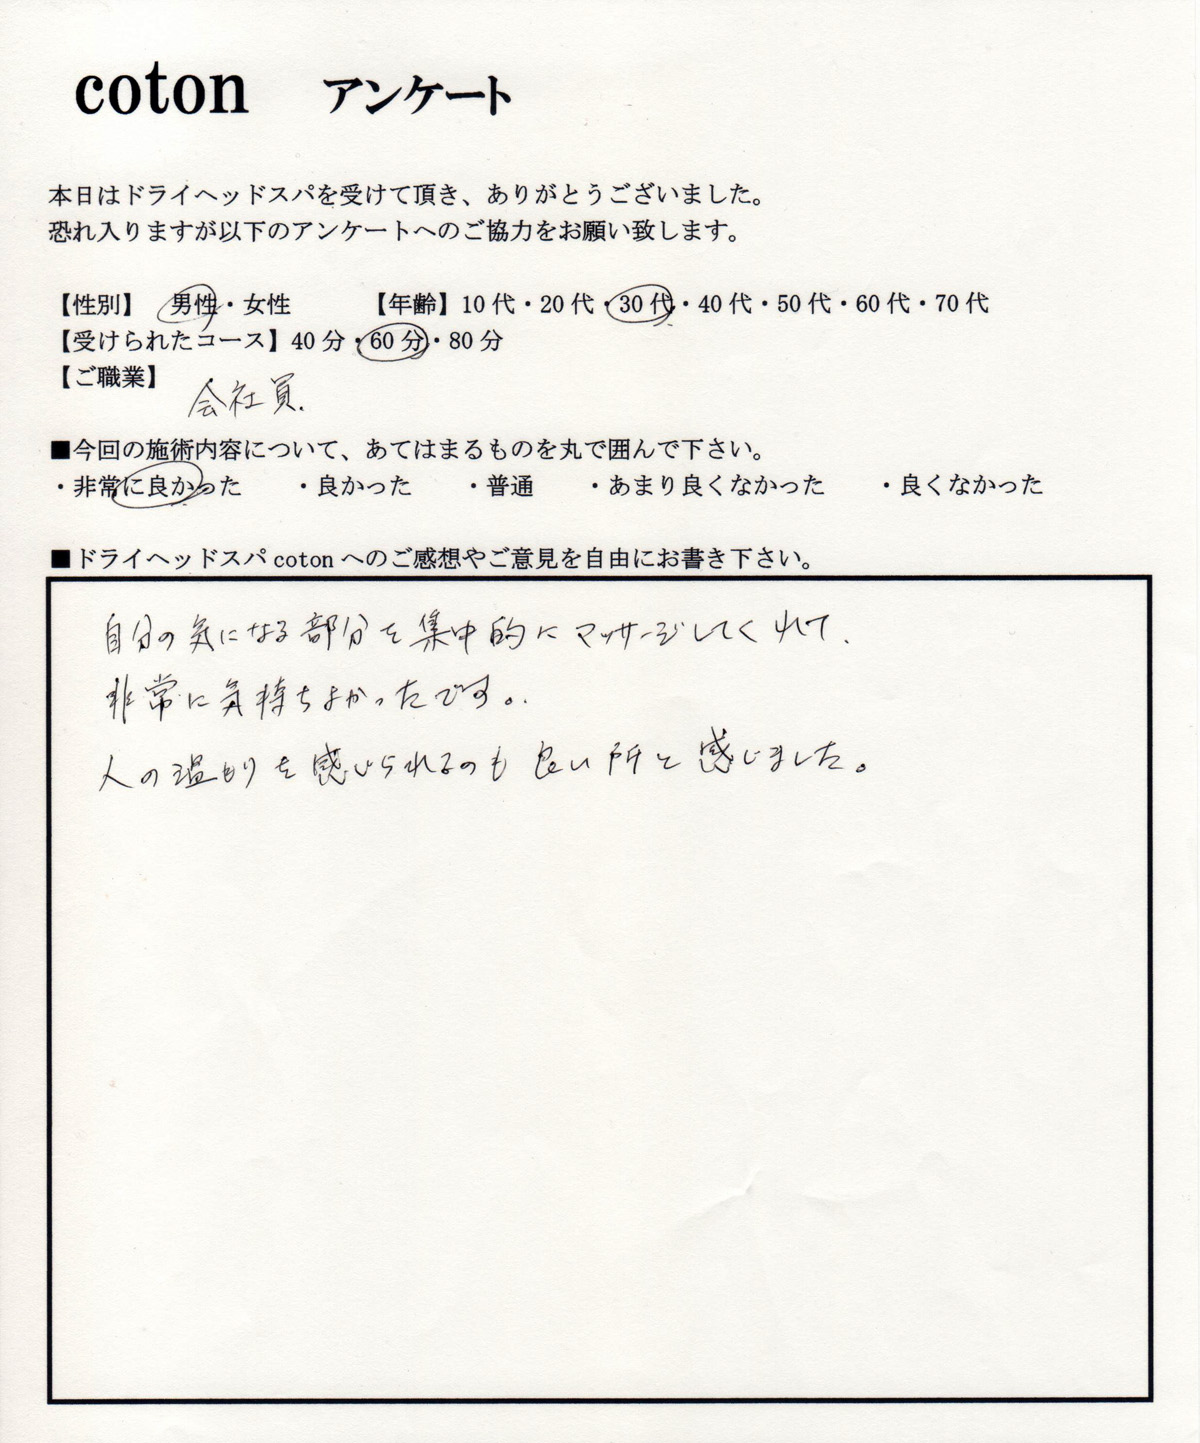 coton アンケート
本日はドライヘッドスパを受けて頂き、ありがとうございました。
恐れ入りますが以下のアンケートへのご協力をお願い致します。
【性別】 男性・女性 【年齢】10代・20代・30代・40代・50代・60代・70代
【受けられたコース】40分・60分・80分
【ご職業】
会社員.
■今回の施術内容について、あてはまるものを丸で囲んで下さい。
・非常に良かった ・良かった ・普通 ・あまり良くなかった ・良くなかった
■ドライヘッドスパcotonへのご感想やご意見を自由にお書き下さい。
自分の気になる部分を集中的にマッサージしてくれて、
非常に気持ちよかったです。
人の温もりを感じられるのも良い所と感じました。